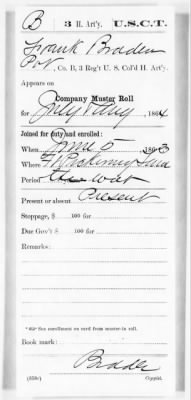 B 3 H. Art'y. U.S.C.T.
Frank Braden
Pvt, Co. B, 3 Reg't U. S. Col'd H. Art'y.
Appears on
Company Muster Roll
for July & Aug, 1864
Joined for duty and enrolled:
When June 5, 1863
Where Ft Pickering Tenn
Period the war
Present or absent Present
Stoppage, $ 100 for
Due Gov't $ 100 for
Remarks:
* See enrollment on card from muster-in roll.
Book mark:
(858c) Copyist.